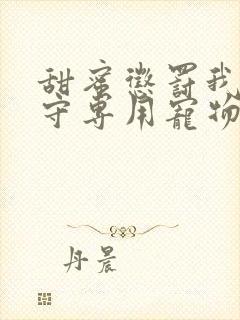 甜蜜懲罰我
守專用寵物
丹晨